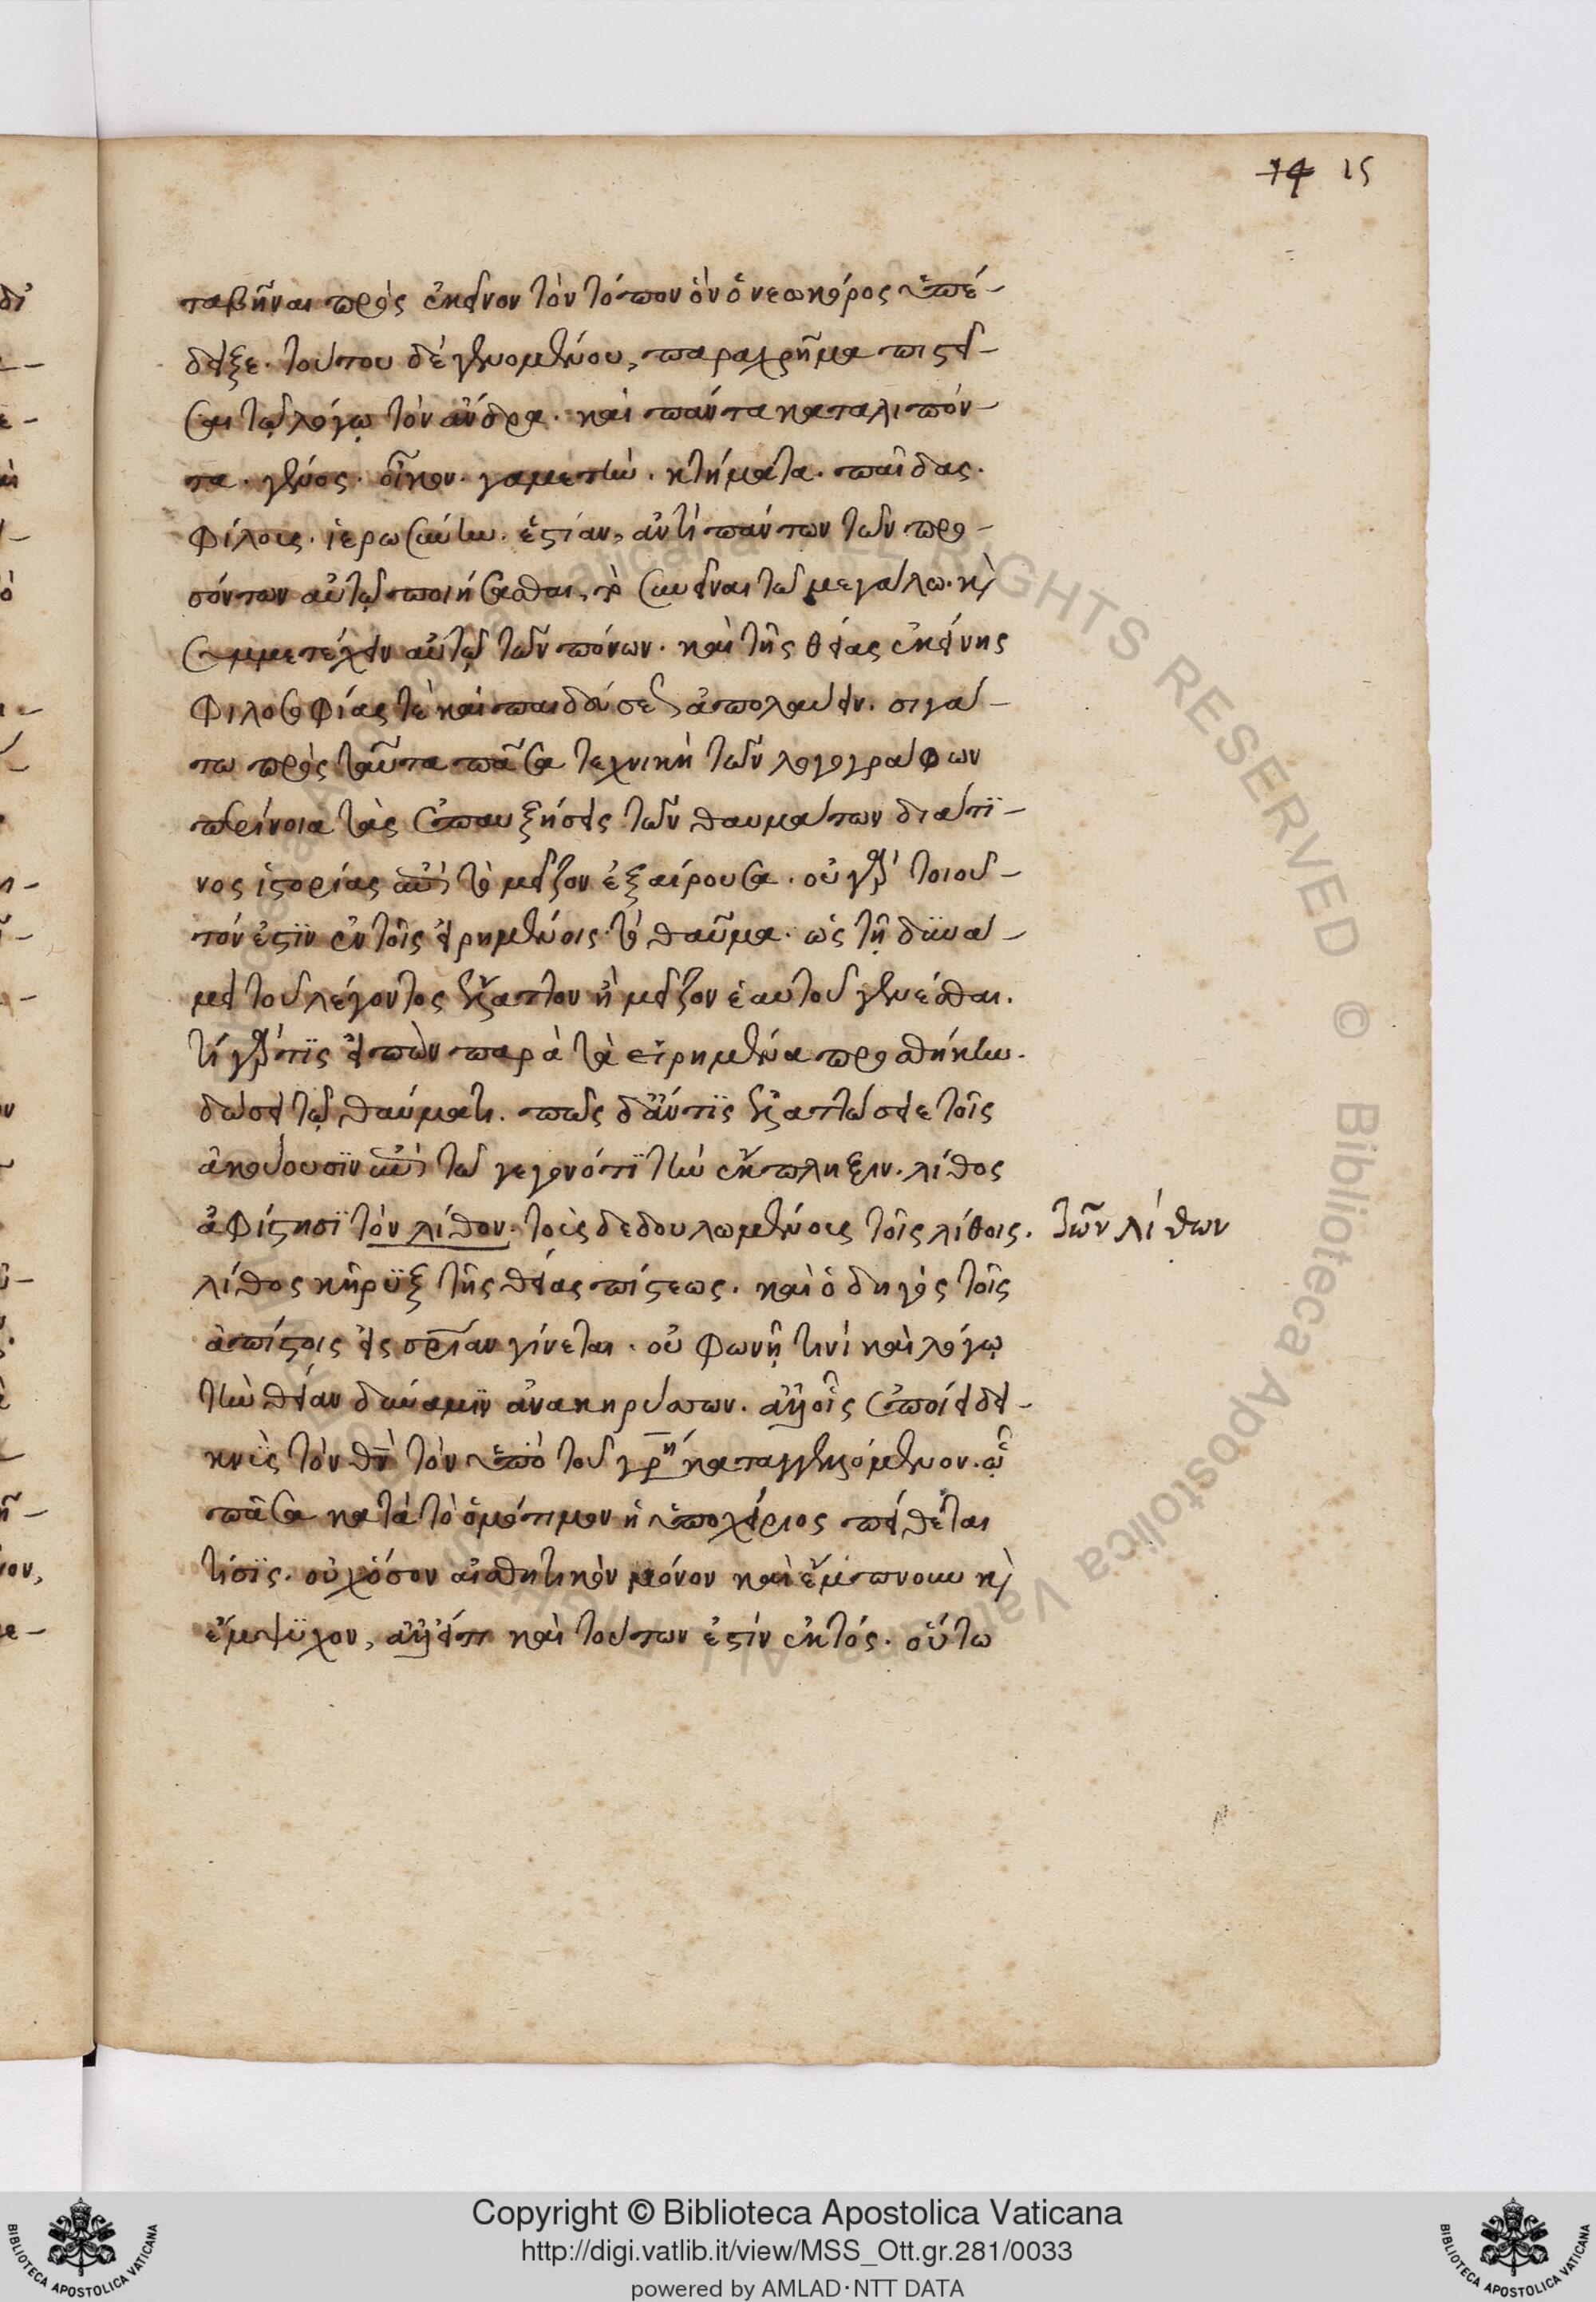 14 15
ταβῆναι πρὸς ἐκεῖνον τὸν τόπον ὃν ὁ νεωκόρος ὑπέ-
δειξε. τούτου δὲ γενομένου, παραχρῆμα πιστεῦ-
σαι τῷ λόγῳ τὸν ἄνδρα. καὶ πάντα καταλιπόν-
τα. γένος. οἶκον. γαμετὴν. κτήματα. παῖδας.
φίλους. ἱερωσύνην. ἑστίαν, ἀντὶ πάντων τῶν προ-
σόντων αὐτῷ ποιήσασθαι, τὸ συνεῖναι τῶ μεγάλω. κ(αὶ)
συμμετέχειν αὐτῷ τῶν πόνων. καὶ τῆς θείας ἐκείνης
φιλοσοφίας τὲ καὶ παιδεύσεως ἀπολαύειν. σιγά-
τω πρὸς ταῦτα πᾶσα τεχνικὴ τῶν λογογράφων
περίνοια τὰς ἐπαυξήσεις τῶν θαυμάτων διά τϊ-
νος ἱστορίας ἐπὶ τὸ μεῖζον ἐξαίρουσα. οὐ γὰρ τοιοῦ-
τόν ἐστϊν ἐν τοῖς εἰρημένοις τὸ θαῦμα. ὡς τῇ δϋνά-
μει τοῦ λέγοντος ἢ ἔλαττον ἢ μεῖζον ἑαυτοῦ γενέσθαι.
τί γάρ τϊς εἰπὼν παρὰ τὰ εἰρημένα προσθήκην.
δώσει τῷ θαύματι. πῶς δ' ἄν τϊς ἐλαττώσειε τοῖς
ἀκούουσϊν ἐπὶ τῶ γεγονότϊ τὴν ἔκπληξιν. λίθος
ἀφίστησϊ τὸν λίθον. τοὺς δεδουλωμένους τοῖς λίθοις. τῶν λίθων
λίθος κῆρϋξ τῆς θείας πίστεως. καὶ ὁδηγὸς τοῖς
ἀπίστοις εἰς σρίαν γίνεται. οὐ φωνῇ τινὶ καὶ λόγῳ
τὴν θείαν δύναμϊν ἀνακηρύττων. ἀλλ' οἷς ἐποίει δει-
κνὺς τὸν θν̅ τὸν ὑπὸ τοῦ γρη καταγγελλόμενον. ᾧ
πᾶσα κατὰ τὸ ὁμότιμον ἡ ὑποχείριος πείθεται
κτίσϊς. οὐχ ὅσον αἰσθητικὸν μόνον καὶ ἔμπνουν κ(αὶ)
ἔμψϋχον, ἀλλ' εἴ τι καὶ τούτων ἐστὶν ἐκτός. οὕτω
Copyright © Biblioteca Apostolica Vaticana
http://digi.vatlib.it/view/MSS_Ott.gr.281/0033
powered by AMLAD·NTT DATA